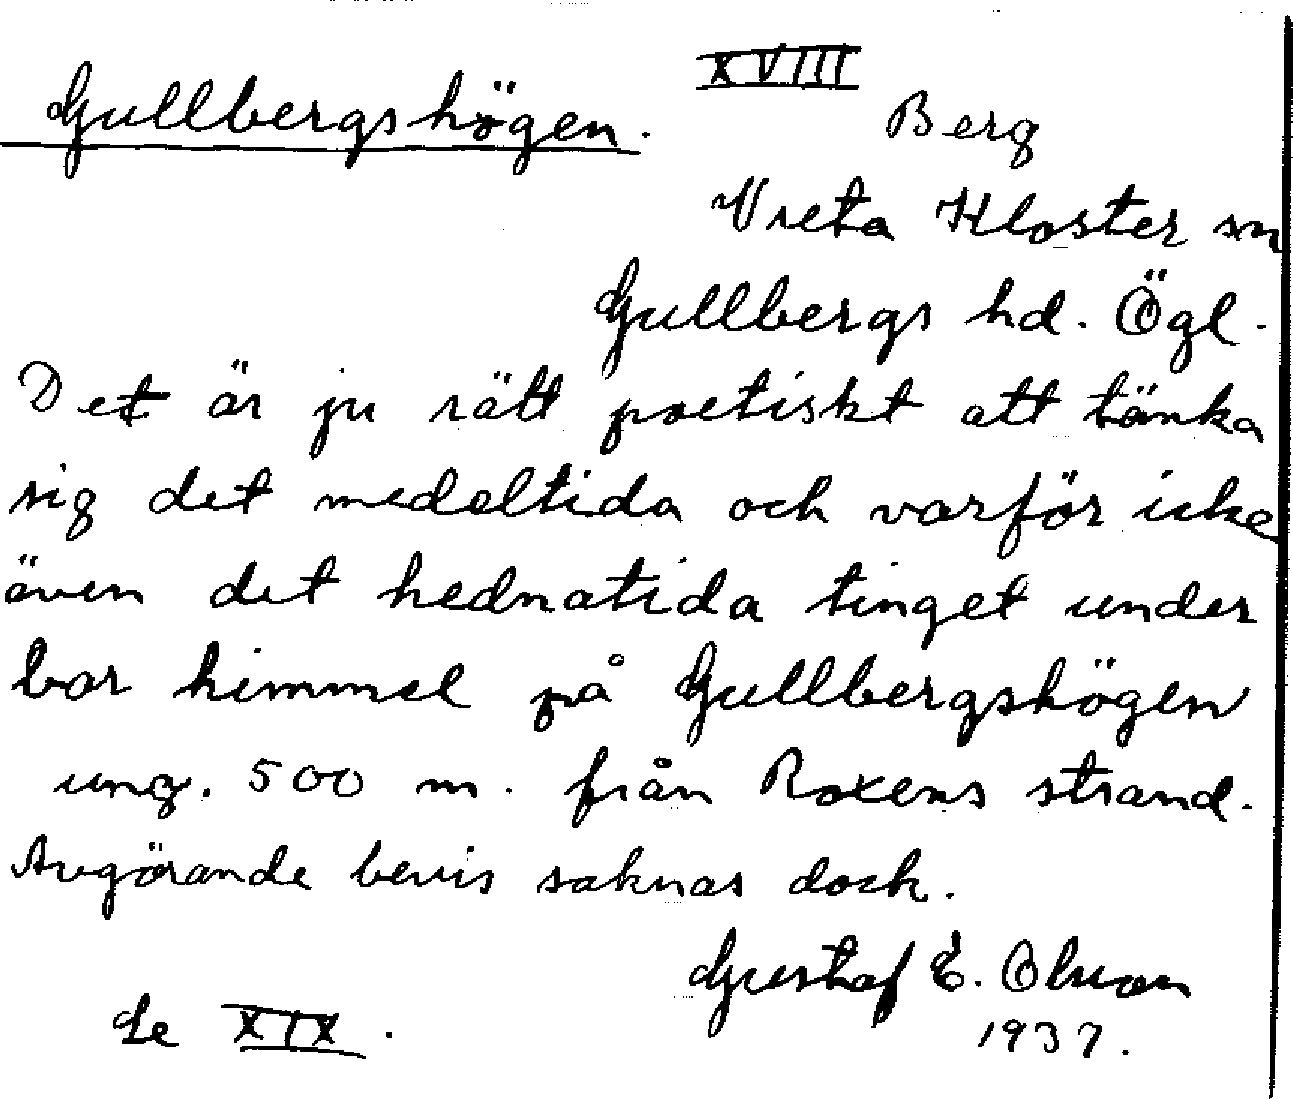 XVIII
Gullbergshögen.
Berg
Vreta Kloster sn
Gullbergs hd. Ögl.
Det är ju rätt poetiskt att tänka
sig det medeltida och varför icke
även det hednatida tinget under
bar himmel på Gullbergshögen
ung. 500 m. från Roxens strand.
Avgörande bevis saknas dock.
Gustaf E. Olsson
1937.
Se XIX.